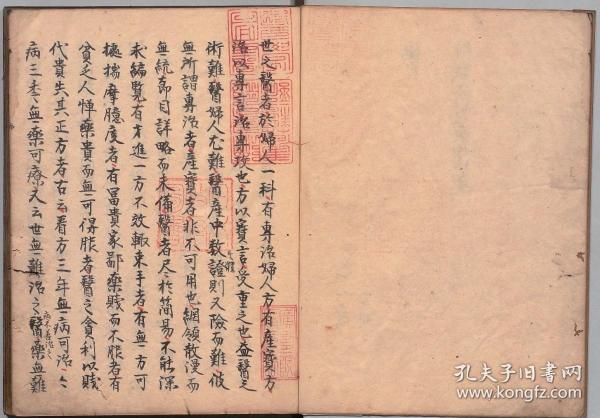 世之醫者於婦人一科有專治婦人方有產寶方
治以專言治專攻也方以寶言受重之也蓋醫之
術難醫婦人尤難醫產中数證則又險而難彼
無所謂專治者產寶者非不可用也綱領散漫而
無統節目詳略而未備醫者尽於簡易不能深
求編覧有才進一方不效輙束手者有無一方可
據揣摩臆度者有冨貴家鄙藥賤而不服者有
貧乏人惮藥貴而無可得服者醫之貪利以賤
代貴失其正方者右云看方三年無病可治〻
病三季無藥可療又云世無難治之醫藥無難
孔夫子旧书网
KONGFZ.COM